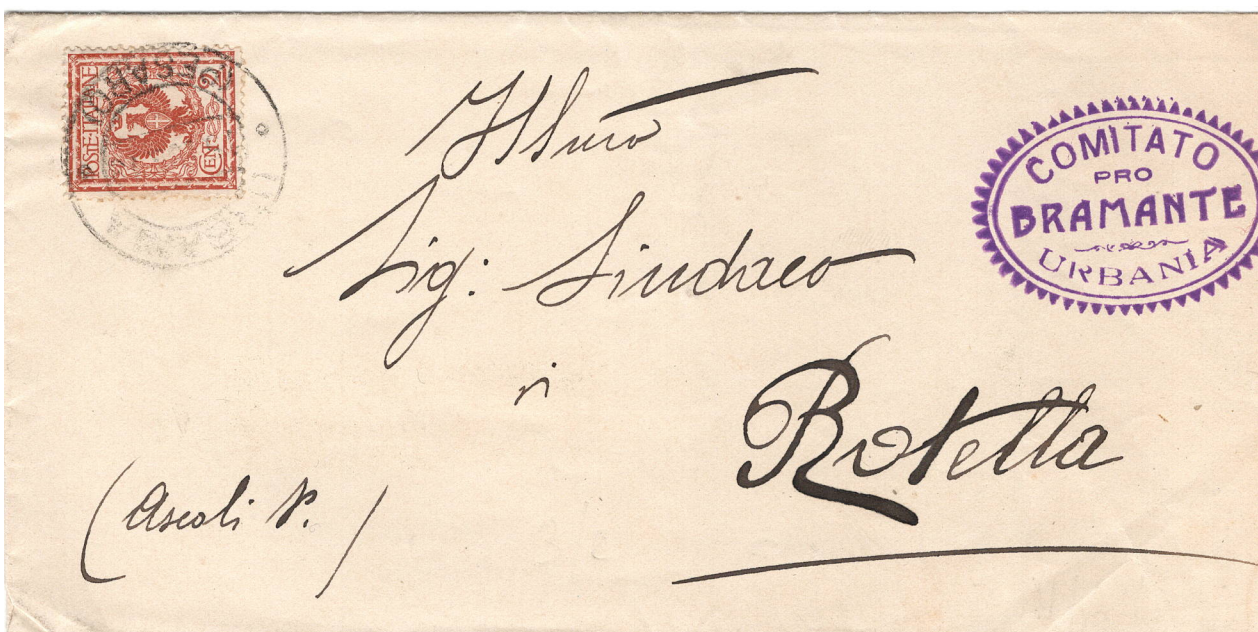 POSTE ITALIANE
CEN 2
PESARO
Illmo
Sig: Sindaco
di
Rotella
(Ascoli P.)
COMITATO
PRO
BRAMANTE
URBANIA